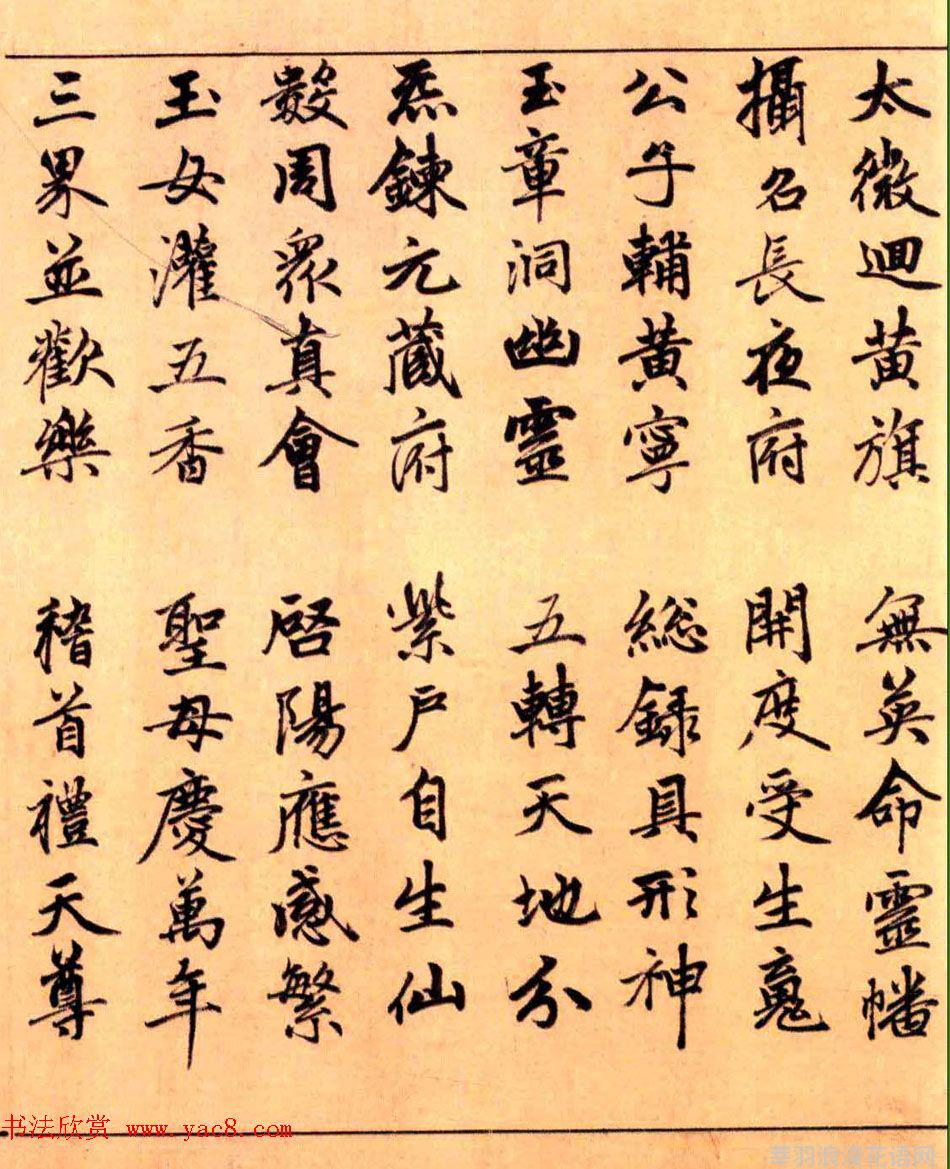 太微迴黄旗 無英命靈幡
攝名長夜府 開度受生䰟
公子輔黄寧 総録具形神
玉章洞幽靈 五轉天地分
炁鍊元藏府 紫户自生仙
數周衆真會 啓陽應感繁
玉女灌五香 聖母慶萬年
三界並歡樂 稽首禮天尊
书法欣赏 www.yac8.com
莘羽浪漫花语网